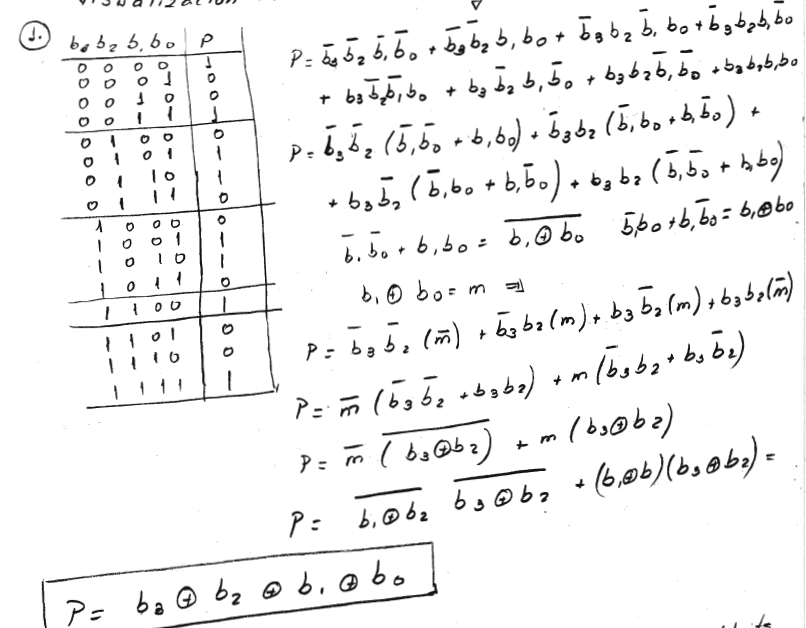 1.
b₃ b₂ b₁ b₀ P
0 0 0 0 1
0 0 0 1 0
0 0 1 0 0
0 0 1 1 1
0 1 0 0 0
0 1 0 1 1
0 1 1 0 1
0 1 1 1 0
1 0 0 0 0
1 0 0 1 1
1 0 1 0 1
1 0 1 1 0
1 1 0 0 1
1 1 0 1 0
1 1 1 0 0
1 1 1 1 1
P = b̅₃ b̅₂ b̅₁ b̅₀ + b̅₃ b̅₂ b₁ b₀ + b̅₃ b₂ b̅₁ b₀ + b̅₃ b₂ b₁ b̅₀
+ b₃ b̅₂ b̅₁ b₀ + b₃ b̅₂ b₁ b̅₀ + b₃ b₂ b̅₁ b̅₀ + b₃ b₂ b₁ b₀
P = b̅₃ b̅₂ (b̅₁ b̅₀ + b₁ b₀) + b̅₃ b₂ (b̅₁ b₀ + b₁ b̅₀) +
+ b₃ b̅₂ (b̅₁ b₀ + b₁ b̅₀) + b₃ b₂ (b̅₁ b̅₀ + b₁ b₀)
b̅₁ b̅₀ + b₁ b₀ = \overline{b₁ ⊕ b₀} b̅₁ b₀ + b₁ b̅₀ = b₁ ⊕ b₀
b₁ ⊕ b₀ = m ⇒
P = b̅₃ b̅₂ (m̅) + b̅₃ b₂ (m) + b₃ b̅₂ (m) + b₃ b₂ (m̅)
P = m̅ (b̅₃ b̅₂ + b₃ b₂) + m (b̅₃ b₂ + b₃ b̅₂)
P = m̅ \overline{(b₃ ⊕ b₂)} + m (b₃ ⊕ b₂)
P = \overline{b₁ ⊕ b₂} \overline{b₃ ⊕ b₂} + (b₁ ⊕ b)(b₃ ⊕ b₂) =
P = b₃ ⊕ b₂ ⊕ b₁ ⊕ b₀